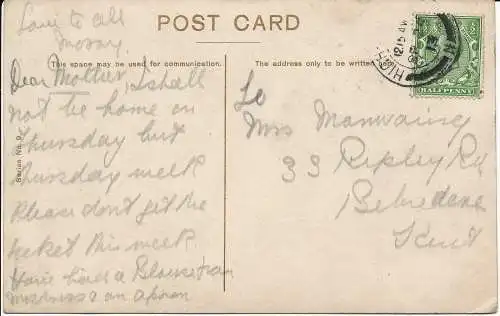 Love to all
POST CARD
This space may be used for communication.
The address only to be written here.
HALFPENNY
Series No. 9
Dear Mother, I shall
not be home on
Thursday but
Thursday week
Please don't get the
ticket this week
Have had a Blouse from
an apron
To
Mrs Manwaring
33 Ripley Rd
Belvedere
Kent